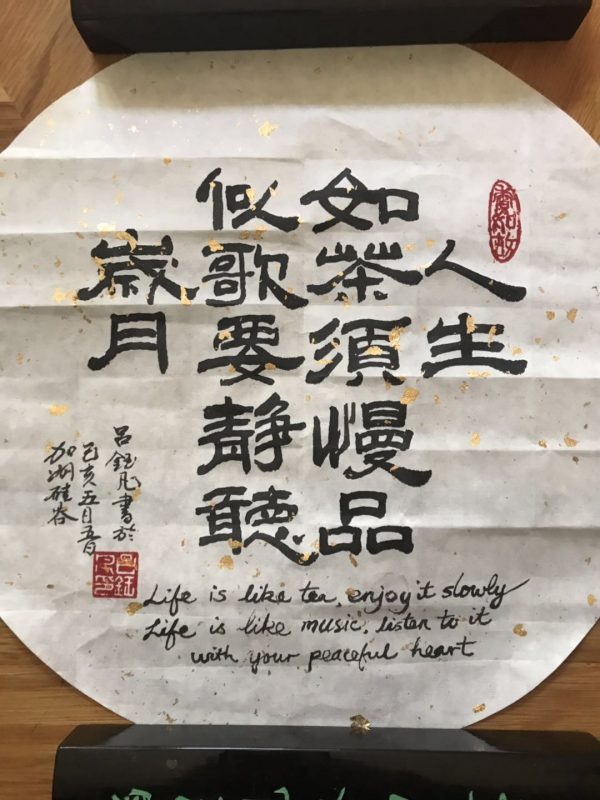 人生
如茶須慢品
似歌要靜聽
歲月
呂鈺凡書於
己亥五月五日
加洲硅谷
Life is like tea, enjoy it slowly
Life is like music, listen to it
with your peaceful heart